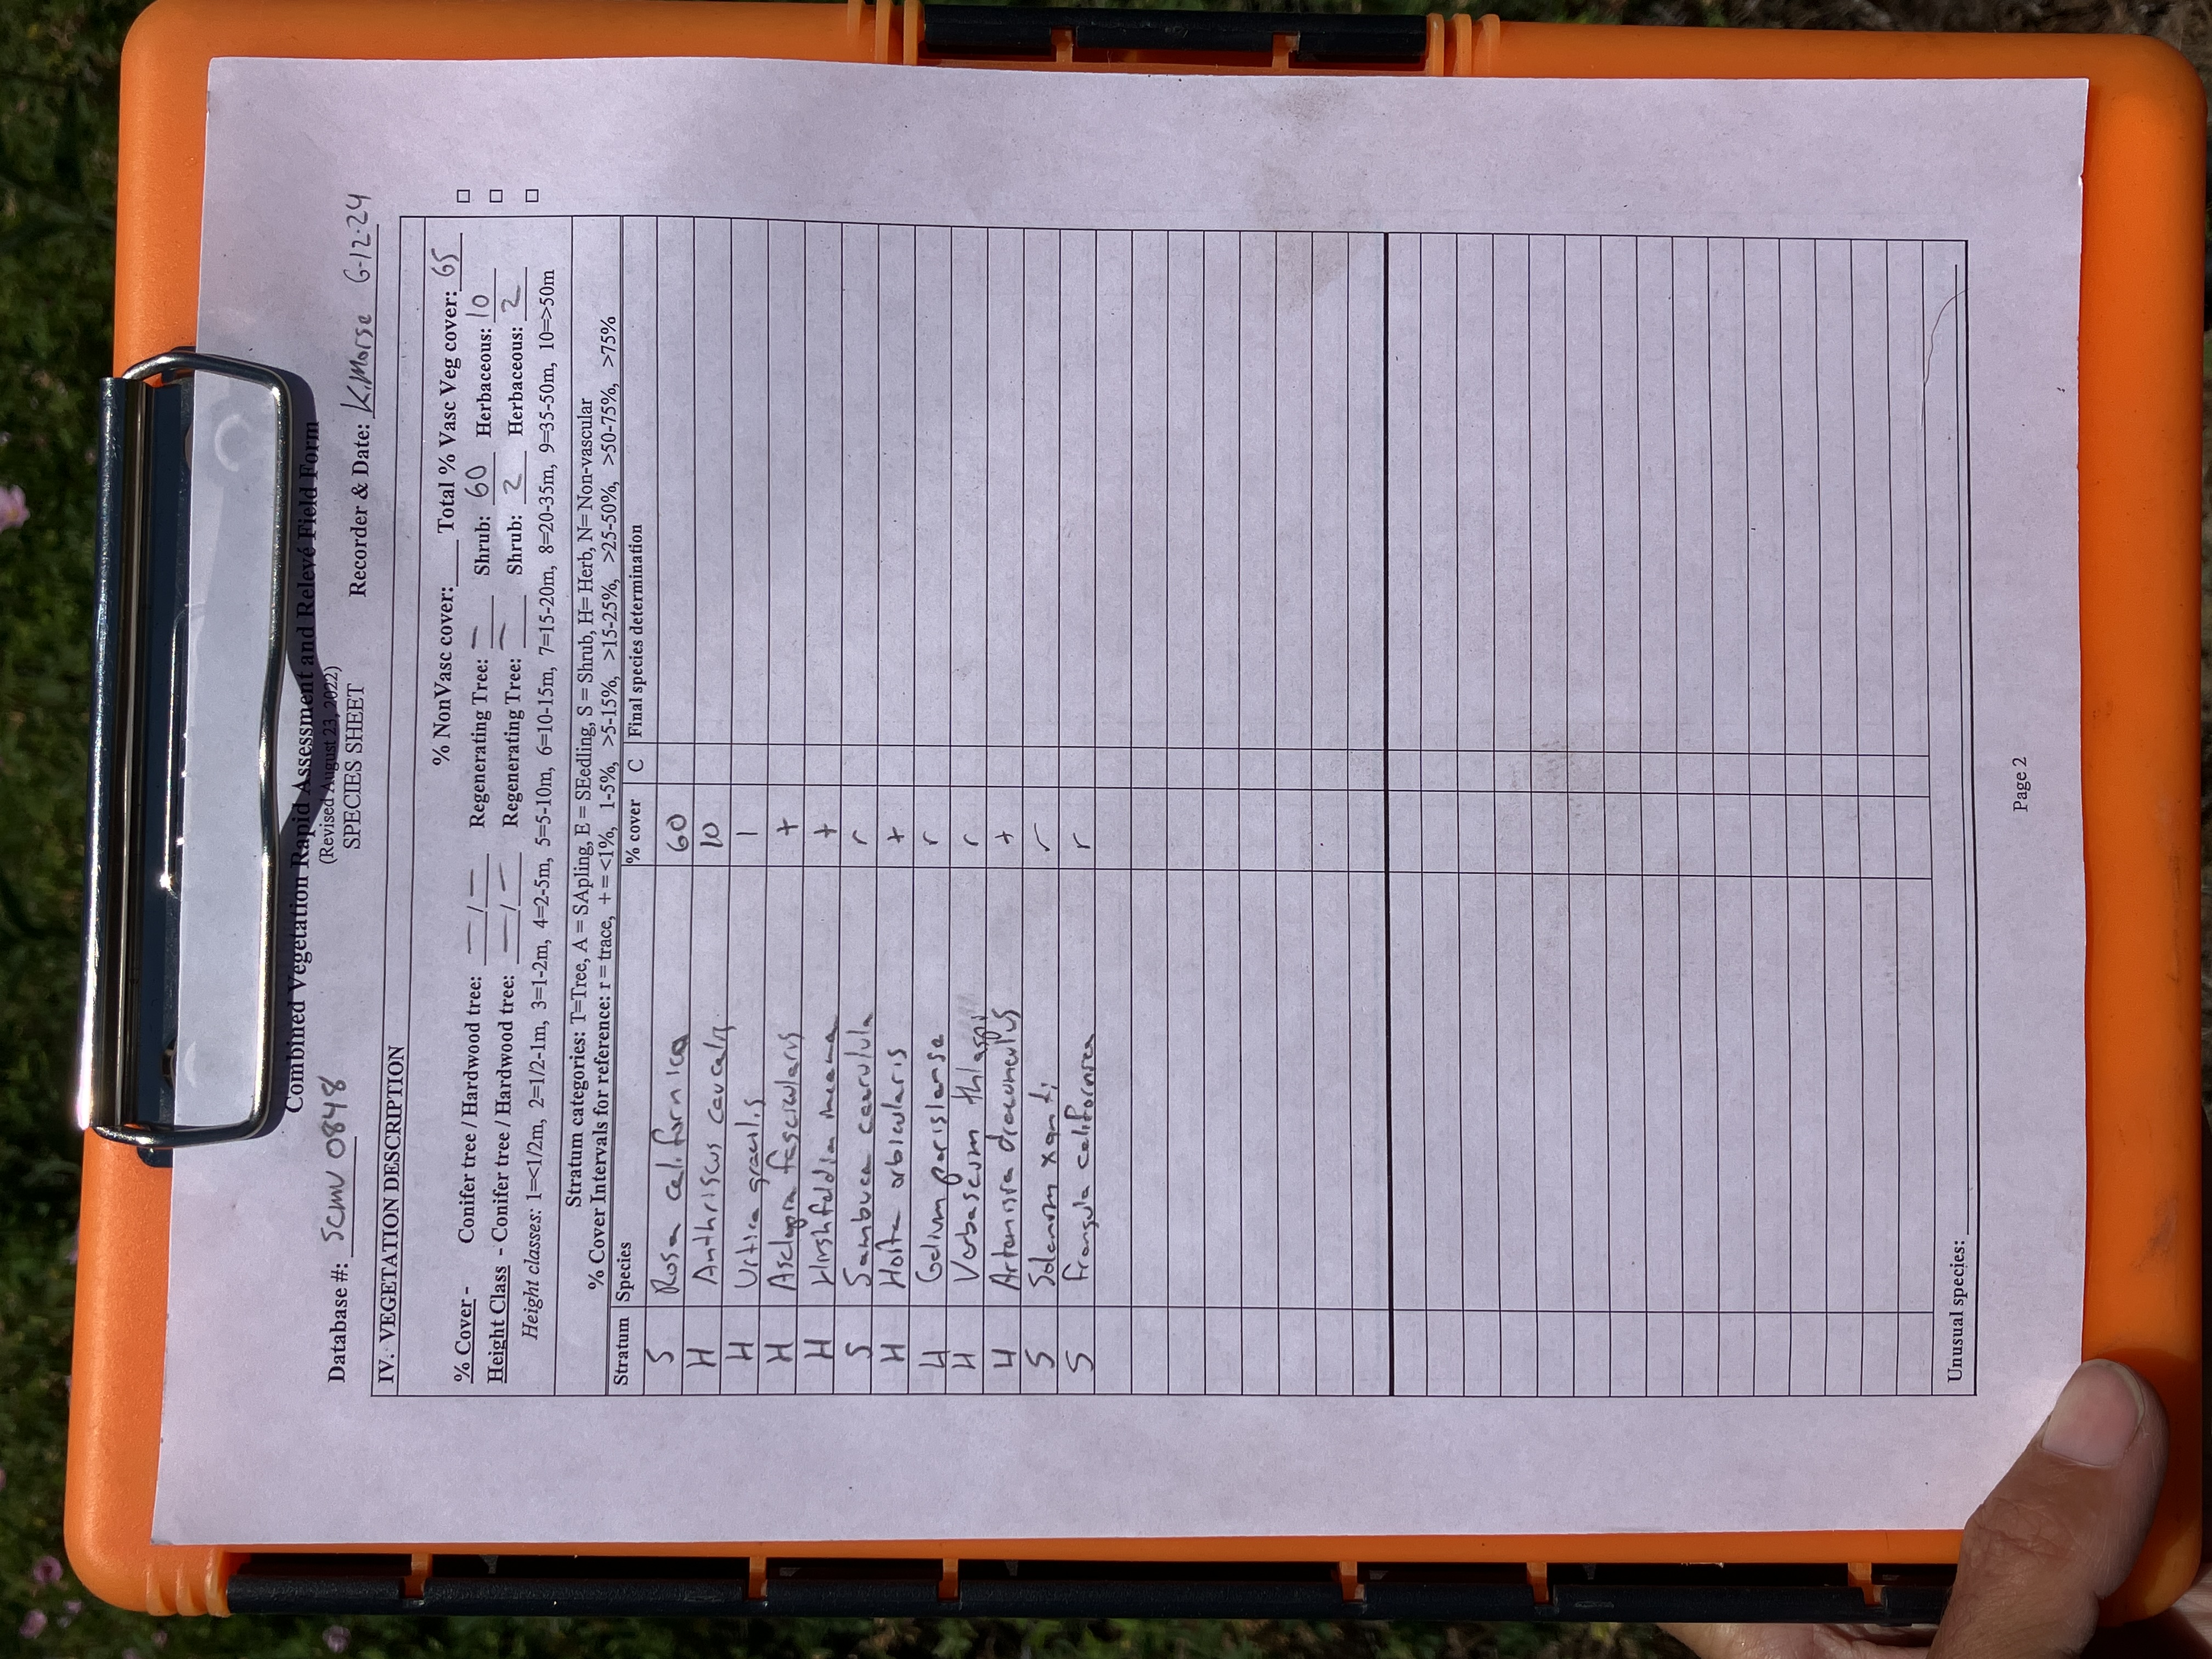 Combined Vegetation Rapid Assessment and Relevé Field Form
(Revised August 23, 2022)
SPECIES SHEET
Database #: SCMV 0848 Recorder & Date: K.Morse 6-12-24
IV. VEGETATION DESCRIPTION
% NonVasc cover: ___ Total % Vasc Veg cover: 65
% Cover - Conifer tree / Hardwood tree: — / — Regenerating Tree: — Shrub: 60 Herbaceous: 10
Height Class - Conifer tree / Hardwood tree: — / — Regenerating Tree: — Shrub: 2 Herbaceous: 2
Height classes: 1=<1/2m, 2=1/2-1m, 3=1-2m, 4=2-5m, 5=5-10m, 6=10-15m, 7=15-20m, 8=20-35m, 9=35-50m, 10=>50m
Stratum categories: T=Tree, A = SApling, E = SEedling, S = Shrub, H= Herb, N= Non-vascular
% Cover Intervals for reference: r = trace, + = <1%, 1-5%, >5-15%, >15-25%, >25-50%, >50-75%, >75%
Stratum Species % cover C Final species determination
S Rosa californica 60
H Anthriscus caucalis 10
H Urtica gracilis 1
H Asclepia fascicularis +
H Hirshfeldia incana +
S Sambuca caerulula r
H Hoita orbicularis +
H Galium parisiense r
H Verbascum thlaspi r
H Artemisia dracunculus +
S Solanum xanti r
S frangula californica r
Unusual species:
Page 2